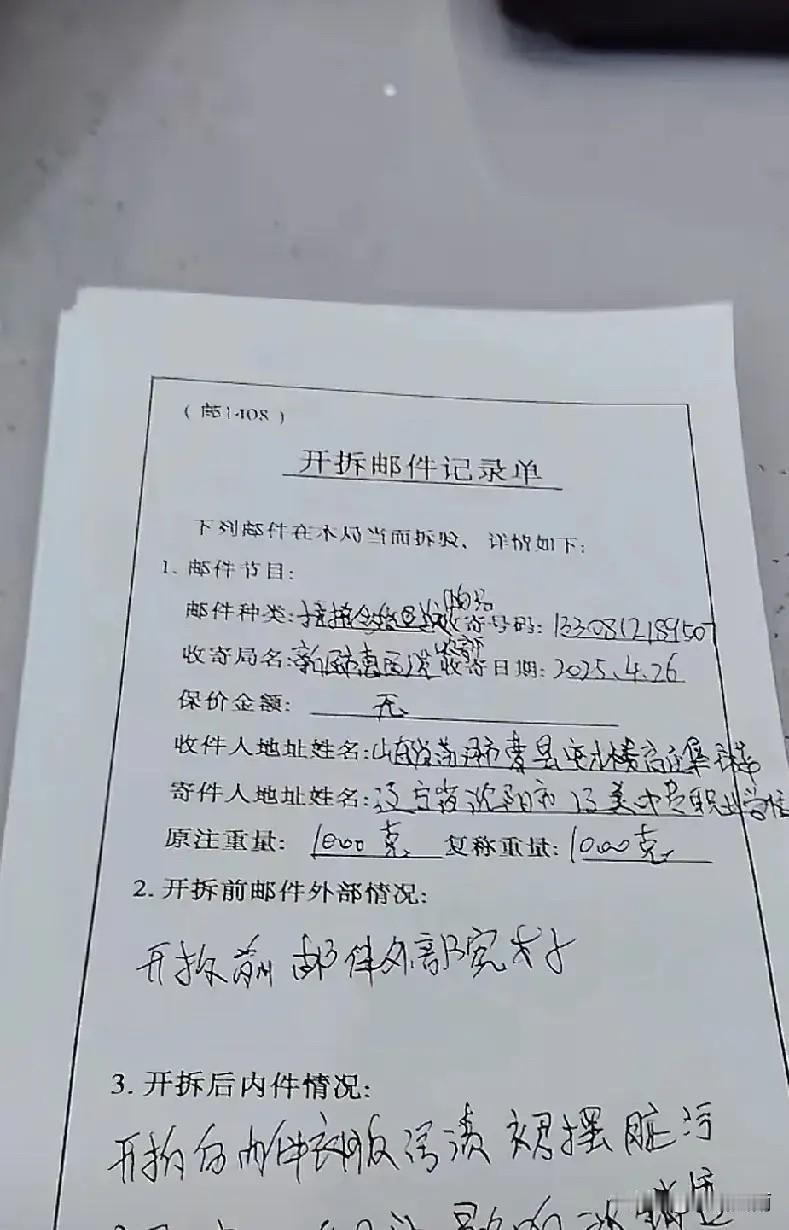 (邮1408)
开拆邮件记录单
下列邮件在本局当面拆验、详情如下:
1. 邮件节目:
邮件种类: 收寄号码: 1330812189507
收寄局名: 收寄日期: 2025.4.26
保价金额: 无
收件人地址姓名: 山东省菏泽市曹县
寄件人地址姓名: 辽宁省沈阳市 中专职业学校
原注重量: 1000克 复称重量: 1000克
2. 开拆前邮件外部情况:
开拆前邮件外部完好
3. 开拆后内件情况:
开拆后内件衣服污渍 裙摆脏污
影响